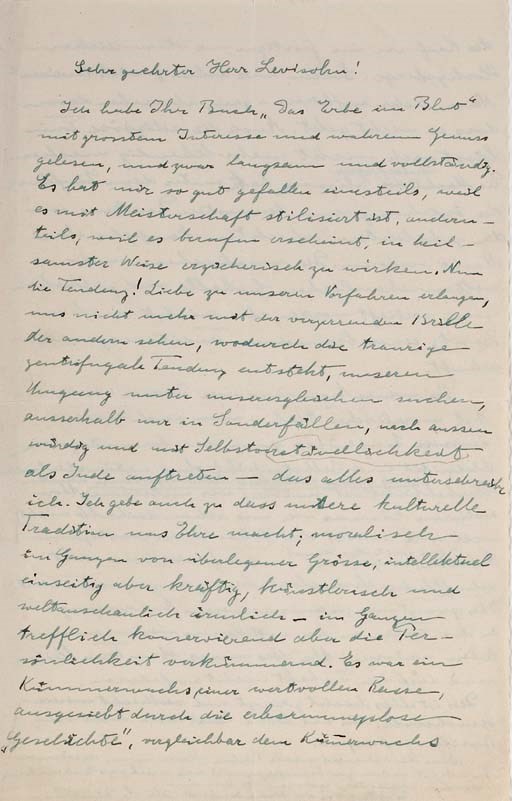 Sehr geehrter Herr Levisohn!
Ich habe Ihr Buch „Das Erbe im Blut“
mit grosstem Interesse und wahrem Genuss
gelesen, und zwar langsam und vollständig.
Es hat mir so gut gefallen einesteils, weil
es mit Meisterschaft stilisiert ist, andern-
teils, weil es berufen erscheint, in heil-
samster Weise erzieherisch zu wirken. Nun
die Tendenz! Liebe zu unseren Vorfahren erlangen,
uns nicht mehr mit der verzerrenden Brille
der andern sehen, wodurch die traurige
zentrifugale Tendenz entsteht, unseren
Umgang unter unseresgleichen suchen,
ausserhalb nur in Sonderfällen, nach aussen
würdig und mit Selbstverständlichkeit
als Jude auftreten – das alles unterschreibe
ich. Ich gebe auch zu dass unsere kulturelle
Tradition uns Ehre macht; moralisch
im Ganzen von überlegener Grösse, intellektuel
einseitig aber kräftig, künstlerisch und
weltanschaulich ärmlich – im Ganzen
trefflich konservierend aber die Per-
sönlichkeit verkümmernd. Es war ein
Kümmerwuchs einer wertvollen Rasse,
ausgesiebt durch die erbarmungslose
„Geschichte“, vergleichbar dem Kümerwuchs